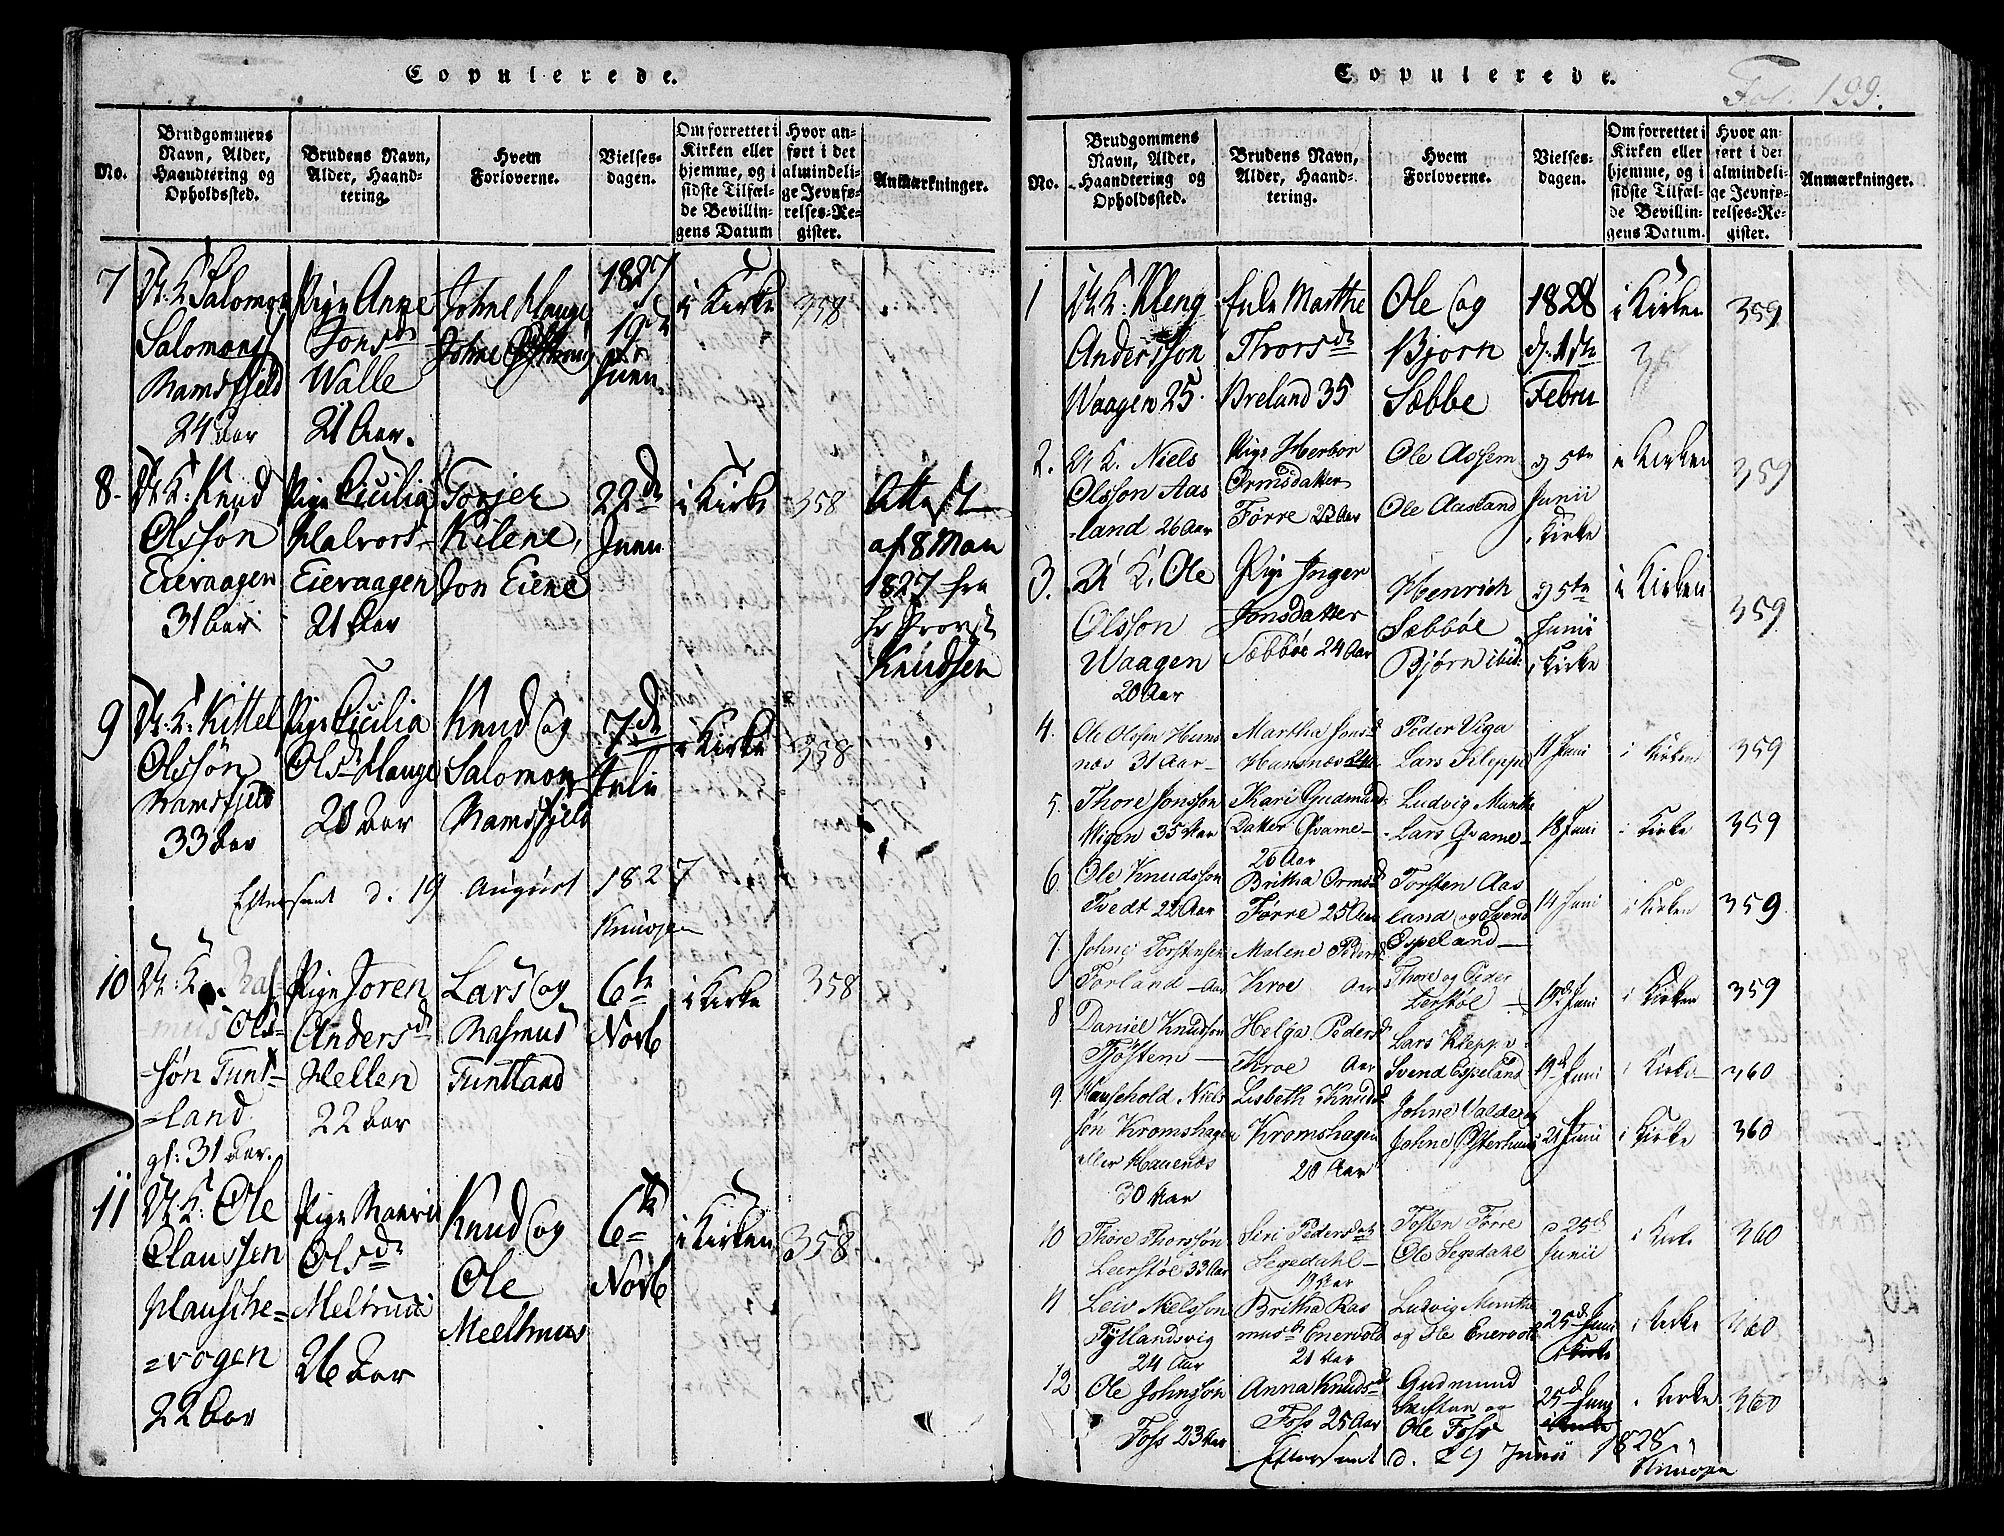 Copulerede.
No.
Brudgommens Navn, Alder, Haandtering og Opholdssted.
Brudens Navn, Alder, Haandtering.
Hvem Forloverne.
Vielsesdagen.
Om forrettet i Kirken eller hjemme, og i sidste Tilfælde Bevillingens Datum
Hvor anført i det almindelige Jevnførelses-Register.
Anmærkninger.
7
U: K Salomon
Salomons
Ramsfjeld
24 Aar
Pige Anne
Jonsd
Walle
21 Aar.
Johne Hauge
Johne
1827
19de
Juni
i Kirke
358
8-
U: K: Knud
Olssøn
Eievaagen
31 Aar
Pige Cicilia
Halvors-
Eievaagen
21 Aar
Torjer
Kilene,
Jon Eiene
22de
Juni
i Kirke
358
Attest
af 8 Mai
1827 fra
Hr Provst
Knudsen
9
U: K: Kittel
Olssøn
Ramsfjeld
33 Aar
Pige Cicilia
Olsd Hauge
20 Aar
Knud og
Salomon
Ramsfjeld
7de
Juli
i Kirke
358
Efterseet d. 19 August 1827
Knudsen
10
U: K: Ras-
mus Ols-
søn Tunt-
=land
gl: 31 Aar.
Pige Joren
Andersd
Hellen
22 Aar
Lars og
Rasmus
Tuntland
6te
Novb
i Kirke
358
11
U: K: Ole
Claussen
Hausche-
=vogen
22 Aar
Pige
Olsd
26 Aar
Knud og
Ole
Meelhuus
6te
Novb
i Kirken
358
Copulerede.
Fol. 199.
No.
Brudgommens Navn, Alder, Haandtering og Opholdssted.
Brudens Navn, Alder, Haandtering.
Hvem Forloverne.
Vielsesdagen.
Om forrettet i Kirken eller hjemme, og i sidste Tilfælde Bevillingens Datum.
Hvor anført i det almindelige Jevnførelses-Register.
Anmærkninger.
1
U K: Kleng
Andersson
Waagen 25
Enke Marthe
Thorsd
Breland 35
Ole og
Bjorn
Sæbbe
1828
d: 1de
Febru
i Kirken
359
2.
U K. Niels
Olsson Aas
-land 26 Aar
Pige Herbor
Ormsdatter
Førre 23 Aar
Ole Aasem
Ole Aasland
d 5te
Junii
i Kirke
i Kirken
359
3.
U K. Ole
Olsson
Waagen
20 Aar
Pige Inger
Jonsdatter
Sæbbøe 24 Aar
Henrich
Sæbbøe
Bjørn ibid:
d 5te
Junii
i Kirke
i Kirken
359
4.
Ole Olsen Hums
næs 31 Aar
Martha Jonsd
Humsnæs
Peder Viga
Lars Kleppe
11 Juni
i Kirken
359
5.
Thore Jonsson
Migen 35 Aar
Kari Gudmund
Datter Qvame-
26 Aar
Ludvig Munthe
Lars Qvame-
18 Juni
i Kirke
359
6
Ole Knudsson
Tvedt 22 Aar
Britha Ormsd
Førre 25 Aar
Torsten Aas
land og Svend
Espeland
14 Juni
i Kirken
359
7.
Johne Torstensen
Førland - Aar
Malene Pedersd
Kroe Aar
Thore og Peder
Lerstøl
19d Juni
i Kirken
359
8
Daniel Knudson
Tjøstem
Helga Pedersd
Kroe Aar
Lars Kleppe
Svend Espeland
19d Juni
i Kirke
360
9.
Hausehold Niels
søn Kromshagen
eller Hauenæs
30 Aar
Lisbeth Knudsd
Kromshagen
20 Aar
Johne Valdero
Johne Østerhuus
21 Juni
i Kirke
360
10
Thore Thorssøn
Leerstøl 33 Aar
Siri Pedersdt
Segedahl-
19 Aar
Tosten Førre
Ole Segedahl
d 25d
Junii
i Kirke
360
11
Leiv Nielsson
Tytlandsvig
24 Aar
Britha Ras
musd Enervold
21 Aar
Ludvig Munthe
og Ole Enervold
25d Juni
i Kirke
i Kirke
360
12
Ole Johnsøn
Foss 23 Aar
Anna Knudsd
Foss 25 Aar
Gudmund
og
Ole Foss
25d Juni
i Kirke
i Kirke
360
Efterseet d. 29 Junii 1828.
Knudsen